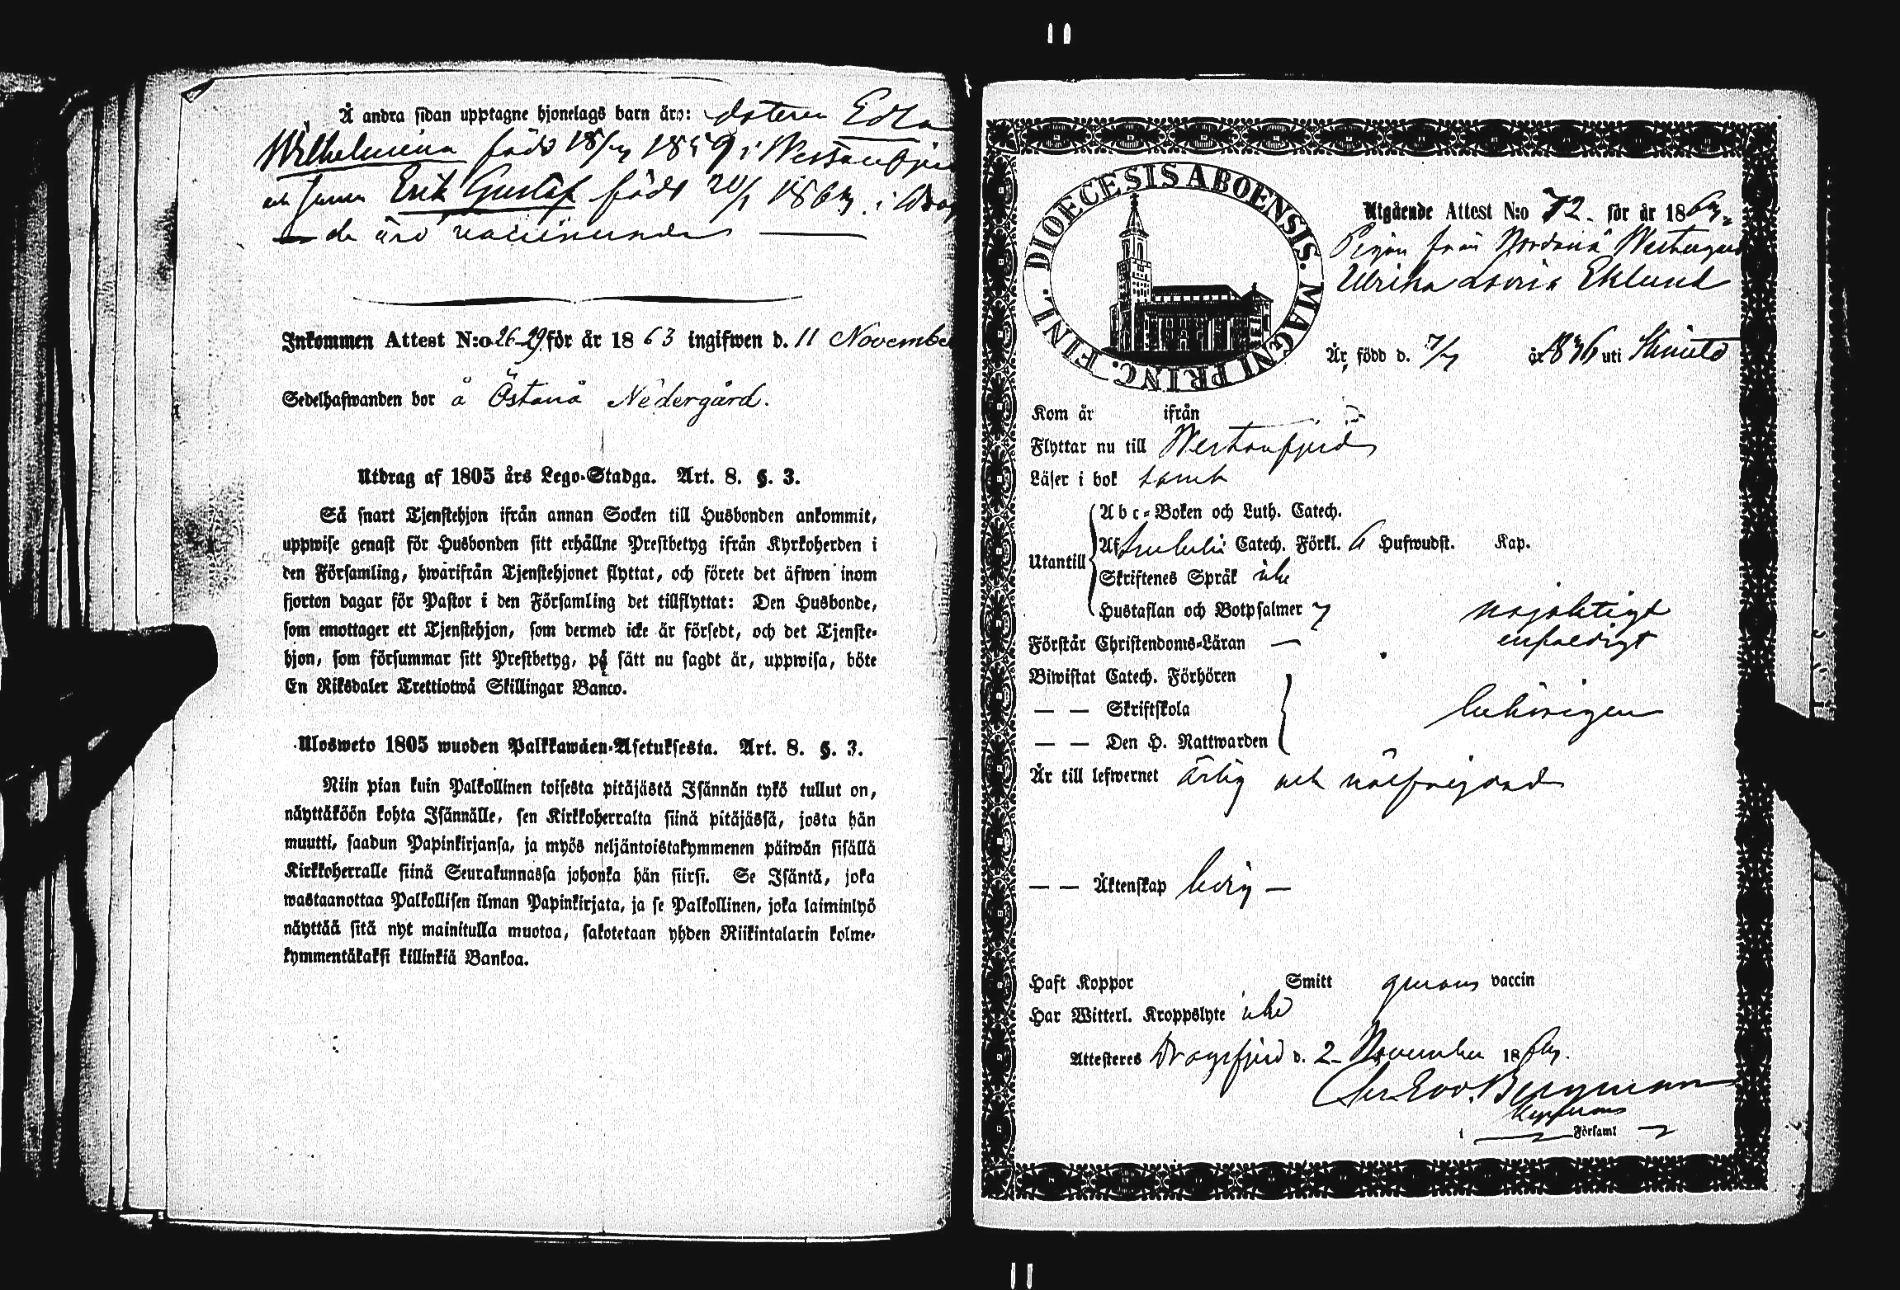 Å andra sidan upptagne hjonelags barn äro: dotern Edla
Wilhelmina född 18/ 1859 i Westanfjer
och sonen Erik Gustaf född 20/1 186 i Drag
de äro vaccinerade
Inkommen Attest N:o 26-29 för år 1863 ingifwen d. 11 November
Sedelhafwanden bor å Östanå Nedergård.
Utdrag af 1805 års Lego-Stadga. Art. 8. §. 3.
Så snart Tjenstehjon ifrån annan Socken till Husbonden ankommit,
uppwise genast för Husbonden sitt erhållne Prestbetyg ifrån Kyrkoherden i
den Församling, hwarifrån Tjenstehjonet flyttat, och förete det äfwen inom
fjorton dagar för Pastor i den Församling det tillflyttat: Den Husbonde,
som emottager ett Tjenstehjon, som dermed icke är försedt, och det Tjenste-
hjon, som försummar sitt Prestbetyg, på sätt nu sagdt är, uppwisa, böte
En Riksdaler Trettiotwå Skillingar Banco.
Ulosweto 1805 wuoden Palkkawäen-Asetuksesta. Art. 8. §. 3.
Niin pian kuin Palkollinen toisesta pitäjästä Isännän tykö tullut on,
näyttäköön kohta Isännälle, sen Kirkkoherralta siinä pitäjässä, josta hän
muutti, saadun Papinkirjansa, ja myös neljäntoistakymmenen päiwän sisällä
Kirkkoherralle siinä Seurakunnassa johonka hän siirsi. Se Isäntä, joka
wastaanottaa Palkollisen ilman Papinkirjata, ja se Palkollinen, joka laiminlyö
näyttää sitä nyt mainitulla muotoa, sakotetaan yhden Riikintalarin kolme-
kymmentäkaksi killinkiä Bankoa.
DIOECESIS ABOENSIS. MAGNI PRINC. FINL.
Utgående Attest N:o 72. för år 1863.
Pigan från Nordanå Westergård
Ulrika Lovisa Eklund
Är född d. 7/7 år 1836 uti Kimito
Kom år ifrån
Flyttar nu till Westanfjerd
Läser i bok samt
Utantill
Abc-Boken och Luth. Catech.
Af Catech. Förkl. 6 Hufwudst. Kap.
Skriftenes Språk icke
Hustaflan och Botpsalmer
nöjaktigt
Förstår Christendoms-Läran —
enfaldigt
Biwistat Catech. Förhören
— — Skriftskola
behörigen
— — Den H. Nattwarden
Är till lefwernet ärlig och välfrejdad
— — Äktenskap ledig —
Haft Koppor Smitt genom vaccin
Har Witterl. Kroppslyte icke
Attesteres Dragsfjerd d. 2 November 1863.
Chr. Edv. Bergman
i Församl